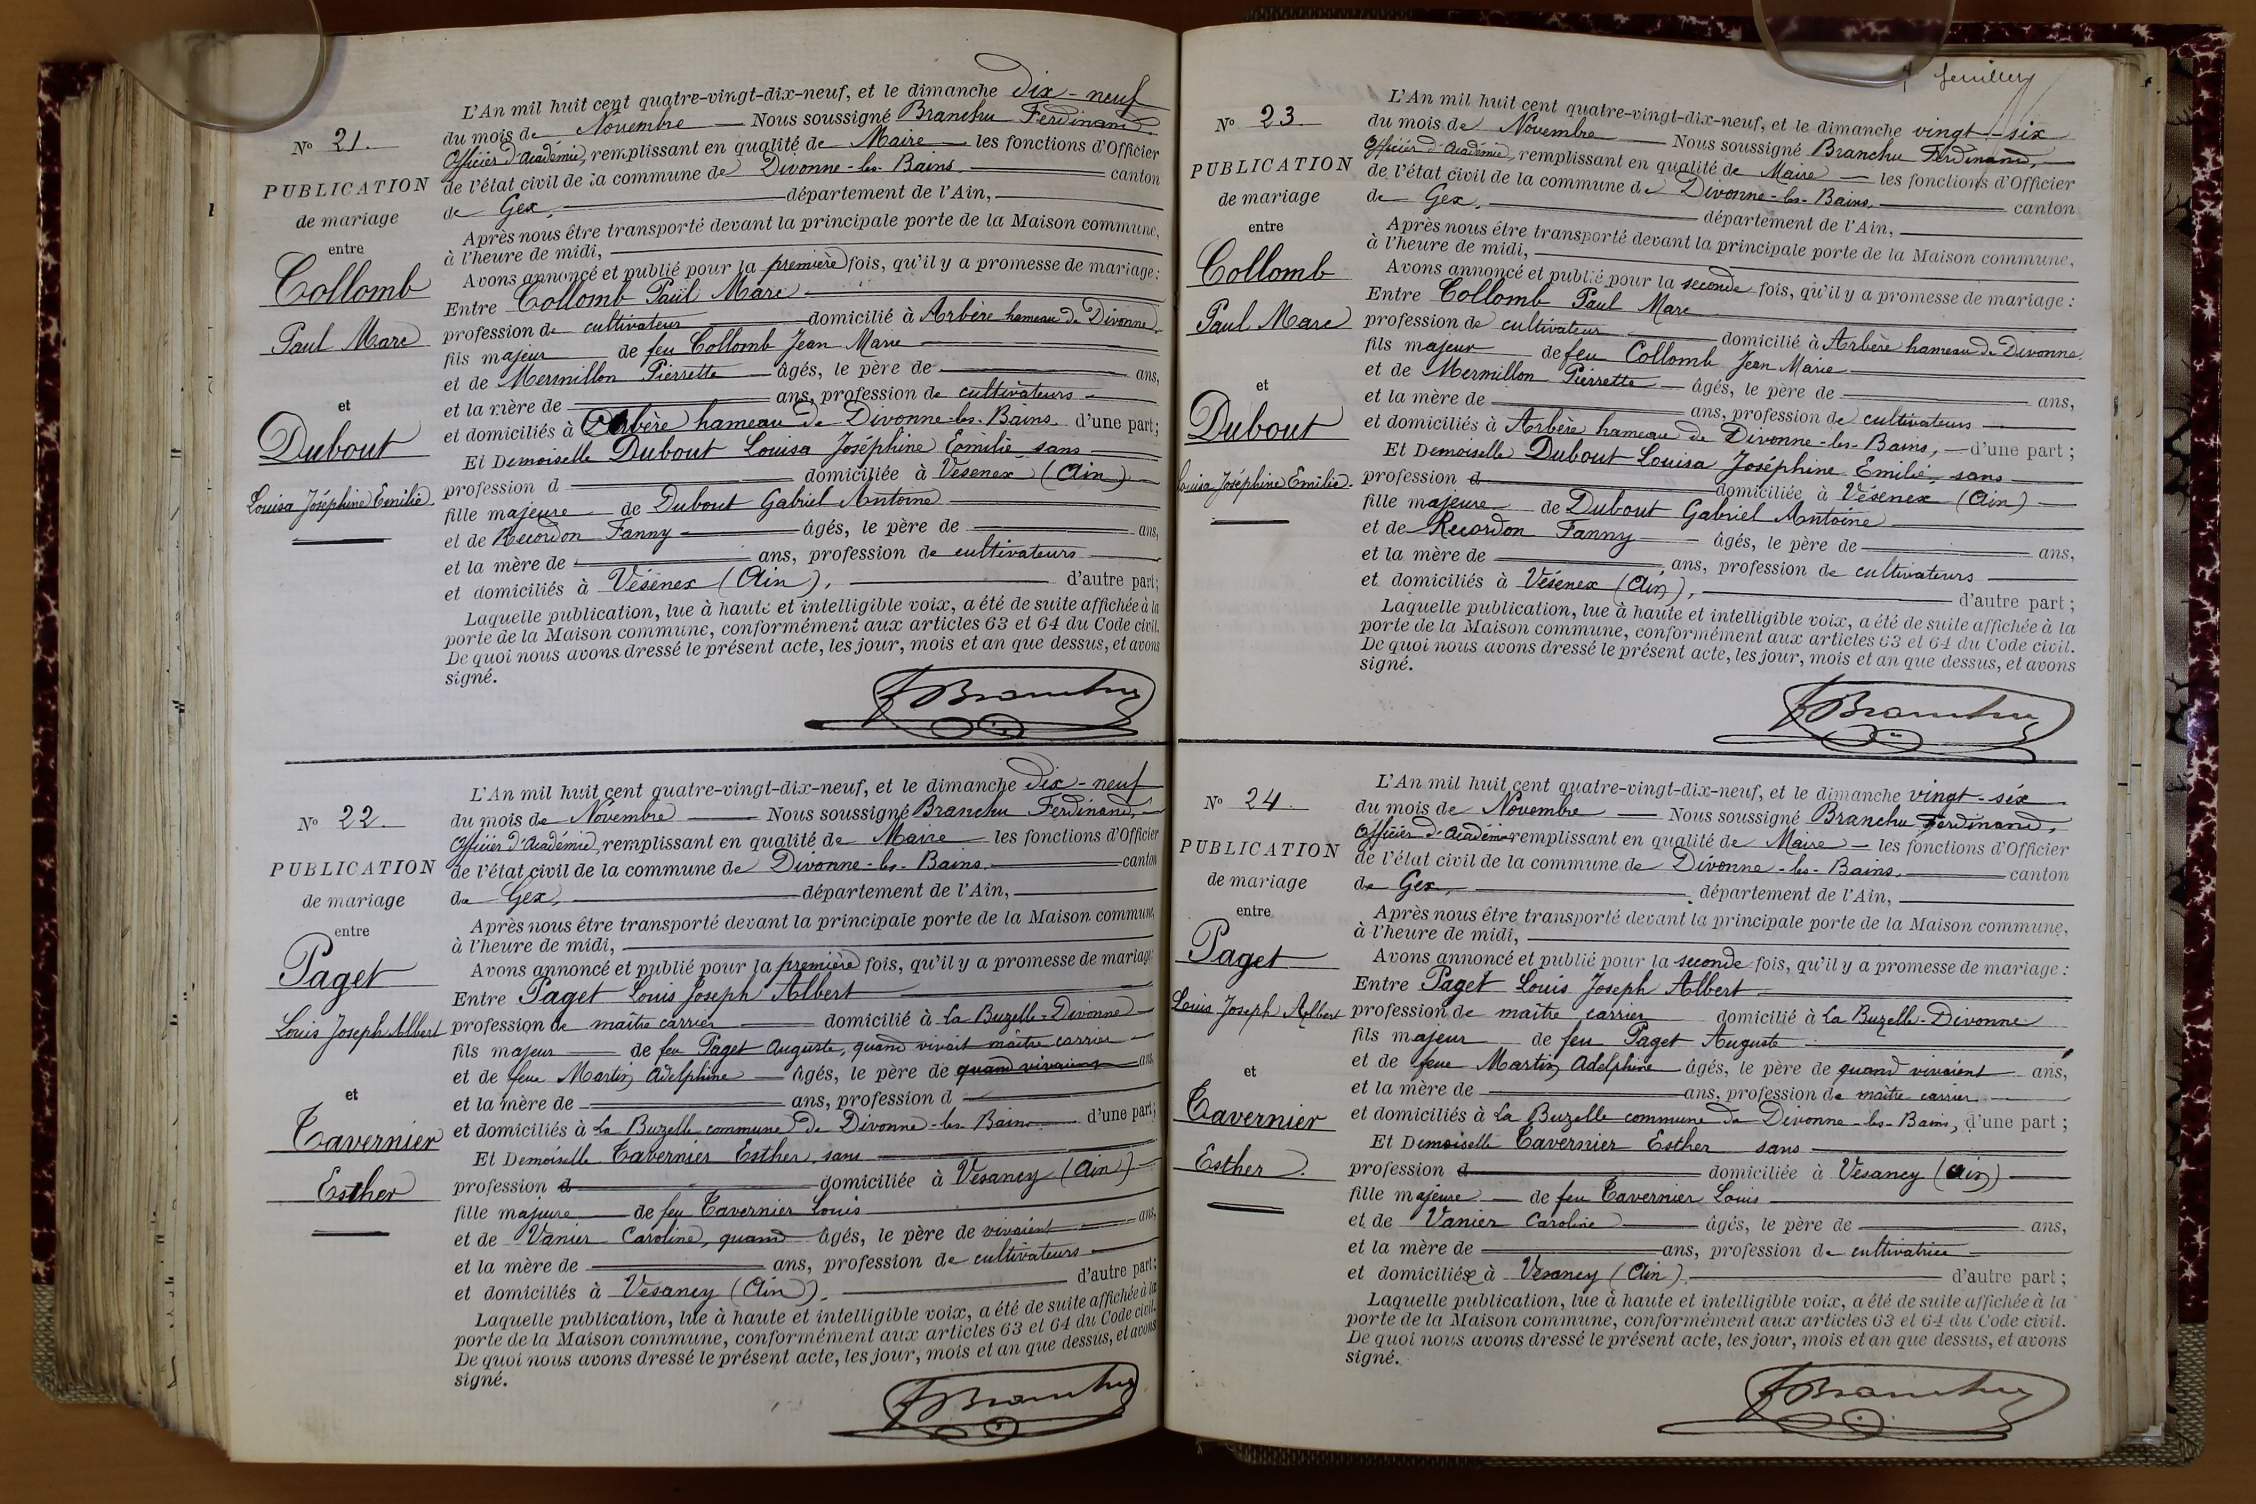 N° 21.
PUBLICATION
de mariage
entre
Collomb
Paul Marc
et
Dubout
Louisa Joséphine Emilie.
L'An mil huit cent quatre-vingt-dix-neuf, et le dimanche dix-neuf
du mois de Novembre Nous soussigné Branchu Ferdinand
Officier d'Académie, remplissant en qualité de Maire les fonctions d'Officier
de l'état civil de la commune de Divonne-les-Bains, canton
de Gex, département de l'Ain,
Après nous être transporté devant la principale porte de la Maison commune,
à l'heure de midi,
Avons annoncé et publié pour la première fois, qu'il y a promesse de mariage:
Entre Collomb Paul Marc
profession de cultivateur domicilié à Arbère hameau de Divonne.
fils majeur de feu Collomb Jean Marie
et de Mermillon Pierrette âgés, le père de ans,
et la mère de ans, profession de cultivateurs
et domiciliés à Arbère hameau de Divonne-les-Bains d'une part;
Et Demoiselle Dubout Louisa Joséphine Emilie sans
profession d domiciliée à Vésenex (Ain)
fille majeure de Dubout Gabriel Antoine
et de Recordon Fanny âgés, le père de ans,
et la mère de ans, profession de cultivateurs
et domiciliés à Vésenex (Ain), d'autre part;
Laquelle publication, lue à haute et intelligible voix, a été de suite affichée à la
porte de la Maison commune, conformément aux articles 63 et 64 du Code civil.
De quoi nous avons dressé le présent acte, les jour, mois et an que dessus, et avons
signé.
FBranchu
N° 22.
PUBLICATION
de mariage
entre
Paget
Louis Joseph Albert
et
Tavernier
Esther
L'An mil huit cent quatre-vingt-dix-neuf, et le dimanche dix-neuf
du mois de Novembre Nous soussigné Branchu Ferdinand,
Officier d'Académie, remplissant en qualité de Maire les fonctions d'Officier
de l'état civil de la commune de Divonne-les-Bains. canton
de Gex, département de l'Ain,
Après nous être transporté devant la principale porte de la Maison commune,
à l'heure de midi,
Avons annoncé et publié pour la première fois, qu'il y a promesse de mariage:
Entre Paget Louis Joseph Albert
profession de maître carrier domicilié à La Buzelle-Divonne
fils majeur de feu Paget Auguste, quand vivait maître carrier
et de feue Martin Adelphine âgés, le père de quand vivaient ans,
et la mère de ans, profession d
et domiciliés à La Buzelle commune de Divonne-les-Bains d'une part;
Et Demoiselle Tavernier Esther, sans
profession d domiciliée à Vesancy (Ain)
fille majeure de feu Tavernier Louis
et de Vanier Caroline, quand âgés, le père de vivaient ans,
et la mère de ans, profession de cultivateurs
et domiciliés à Vesancy (Ain). d'autre part;
Laquelle publication, lue à haute et intelligible voix, a été de suite affichée à la
porte de la Maison commune, conformément aux articles 63 et 64 du Code civil.
De quoi nous avons dressé le présent acte, les jour, mois et an que dessus, et avons
signé.
FBranchu
feuillets
N° 23.
PUBLICATION
de mariage
entre
Collomb
Paul Marc
et
Dubout
Louisa Joséphine Emilie.
L'An mil huit cent quatre-vingt-dix-neuf, et le dimanche vingt-six
du mois de Novembre Nous soussigné Branchu Ferdinand,
Officier d'Académie, remplissant en qualité de Maire les fonctions d'Officier
de l'état civil de la commune de Divonne-les-Bains, canton
de Gex, département de l'Ain,
Après nous être transporté devant la principale porte de la Maison commune,
à l'heure de midi,
Avons annoncé et publié pour la seconde fois, qu'il y a promesse de mariage :
Entre Collomb Paul Marc
profession de cultivateur domicilié à Arbère hameau de Divonne.
fils majeur de feu Collomb Jean Marie
et de Mermillon Pierrette âgés, le père de ans,
et la mère de ans, profession de cultivateurs
et domiciliés à Arbère hameau de Divonne-les-Bains, d'une part ;
Et Demoiselle Dubout Louisa Joséphine Emilie, sans
profession d domiciliée à Vésenex (Ain)
fille majeure de Dubout Gabriel Antoine
et de Recordon Fanny âgés, le père de ans,
et la mère de ans, profession de cultivateurs
et domiciliés à Vésenex (Ain), d'autre part ;
Laquelle publication, lue à haute et intelligible voix, a été de suite affichée à la
porte de la Maison commune, conformément aux articles 63 et 64 du Code civil.
De quoi nous avons dressé le présent acte, les jour, mois et an que dessus, et avons
signé.
FBranchu
N° 24.
PUBLICATION
de mariage
entre
Paget
Louis Joseph Albert
et
Tavernier
Esther.
L'An mil huit cent quatre-vingt-dix-neuf, et le dimanche vingt-six
du mois de Novembre Nous soussigné Branchu Ferdinand,
Officier d'Académie remplissant en qualité de Maire les fonctions d'Officier
de l'état civil de la commune de Divonne-les-Bains, canton
de Gex, département de l'Ain,
Après nous être transporté devant la principale porte de la Maison commune,
à l'heure de midi,
Avons annoncé et publié pour la seconde fois, qu'il y a promesse de mariage :
Entre Paget Louis Joseph Albert
profession de maître carrier domicilié à La Buzelle-Divonne
fils majeur de feu Paget Auguste
et de feue Martin Adelphine âgés, le père de quand vivaient ans,
et la mère de ans, profession de maître carrier
et domiciliés à La Buzelle commune de Divonne-les-Bains, d'une part ;
Et Demoiselle Tavernier Esther sans
profession d domiciliée à Vesancy (Ain)
fille majeure de feu Tavernier Louis
et de Vanier Caroline âgés, le père de ans,
et la mère de ans, profession de cultivatrice
et domiciliée à Vesancy (Ain). d'autre part ;
Laquelle publication, lue à haute et intelligible voix, a été de suite affichée à la
porte de la Maison commune, conformément aux articles 63 et 64 du Code civil.
De quoi nous avons dressé le présent acte, les jour, mois et an que dessus, et avons
signé.
FBranchu